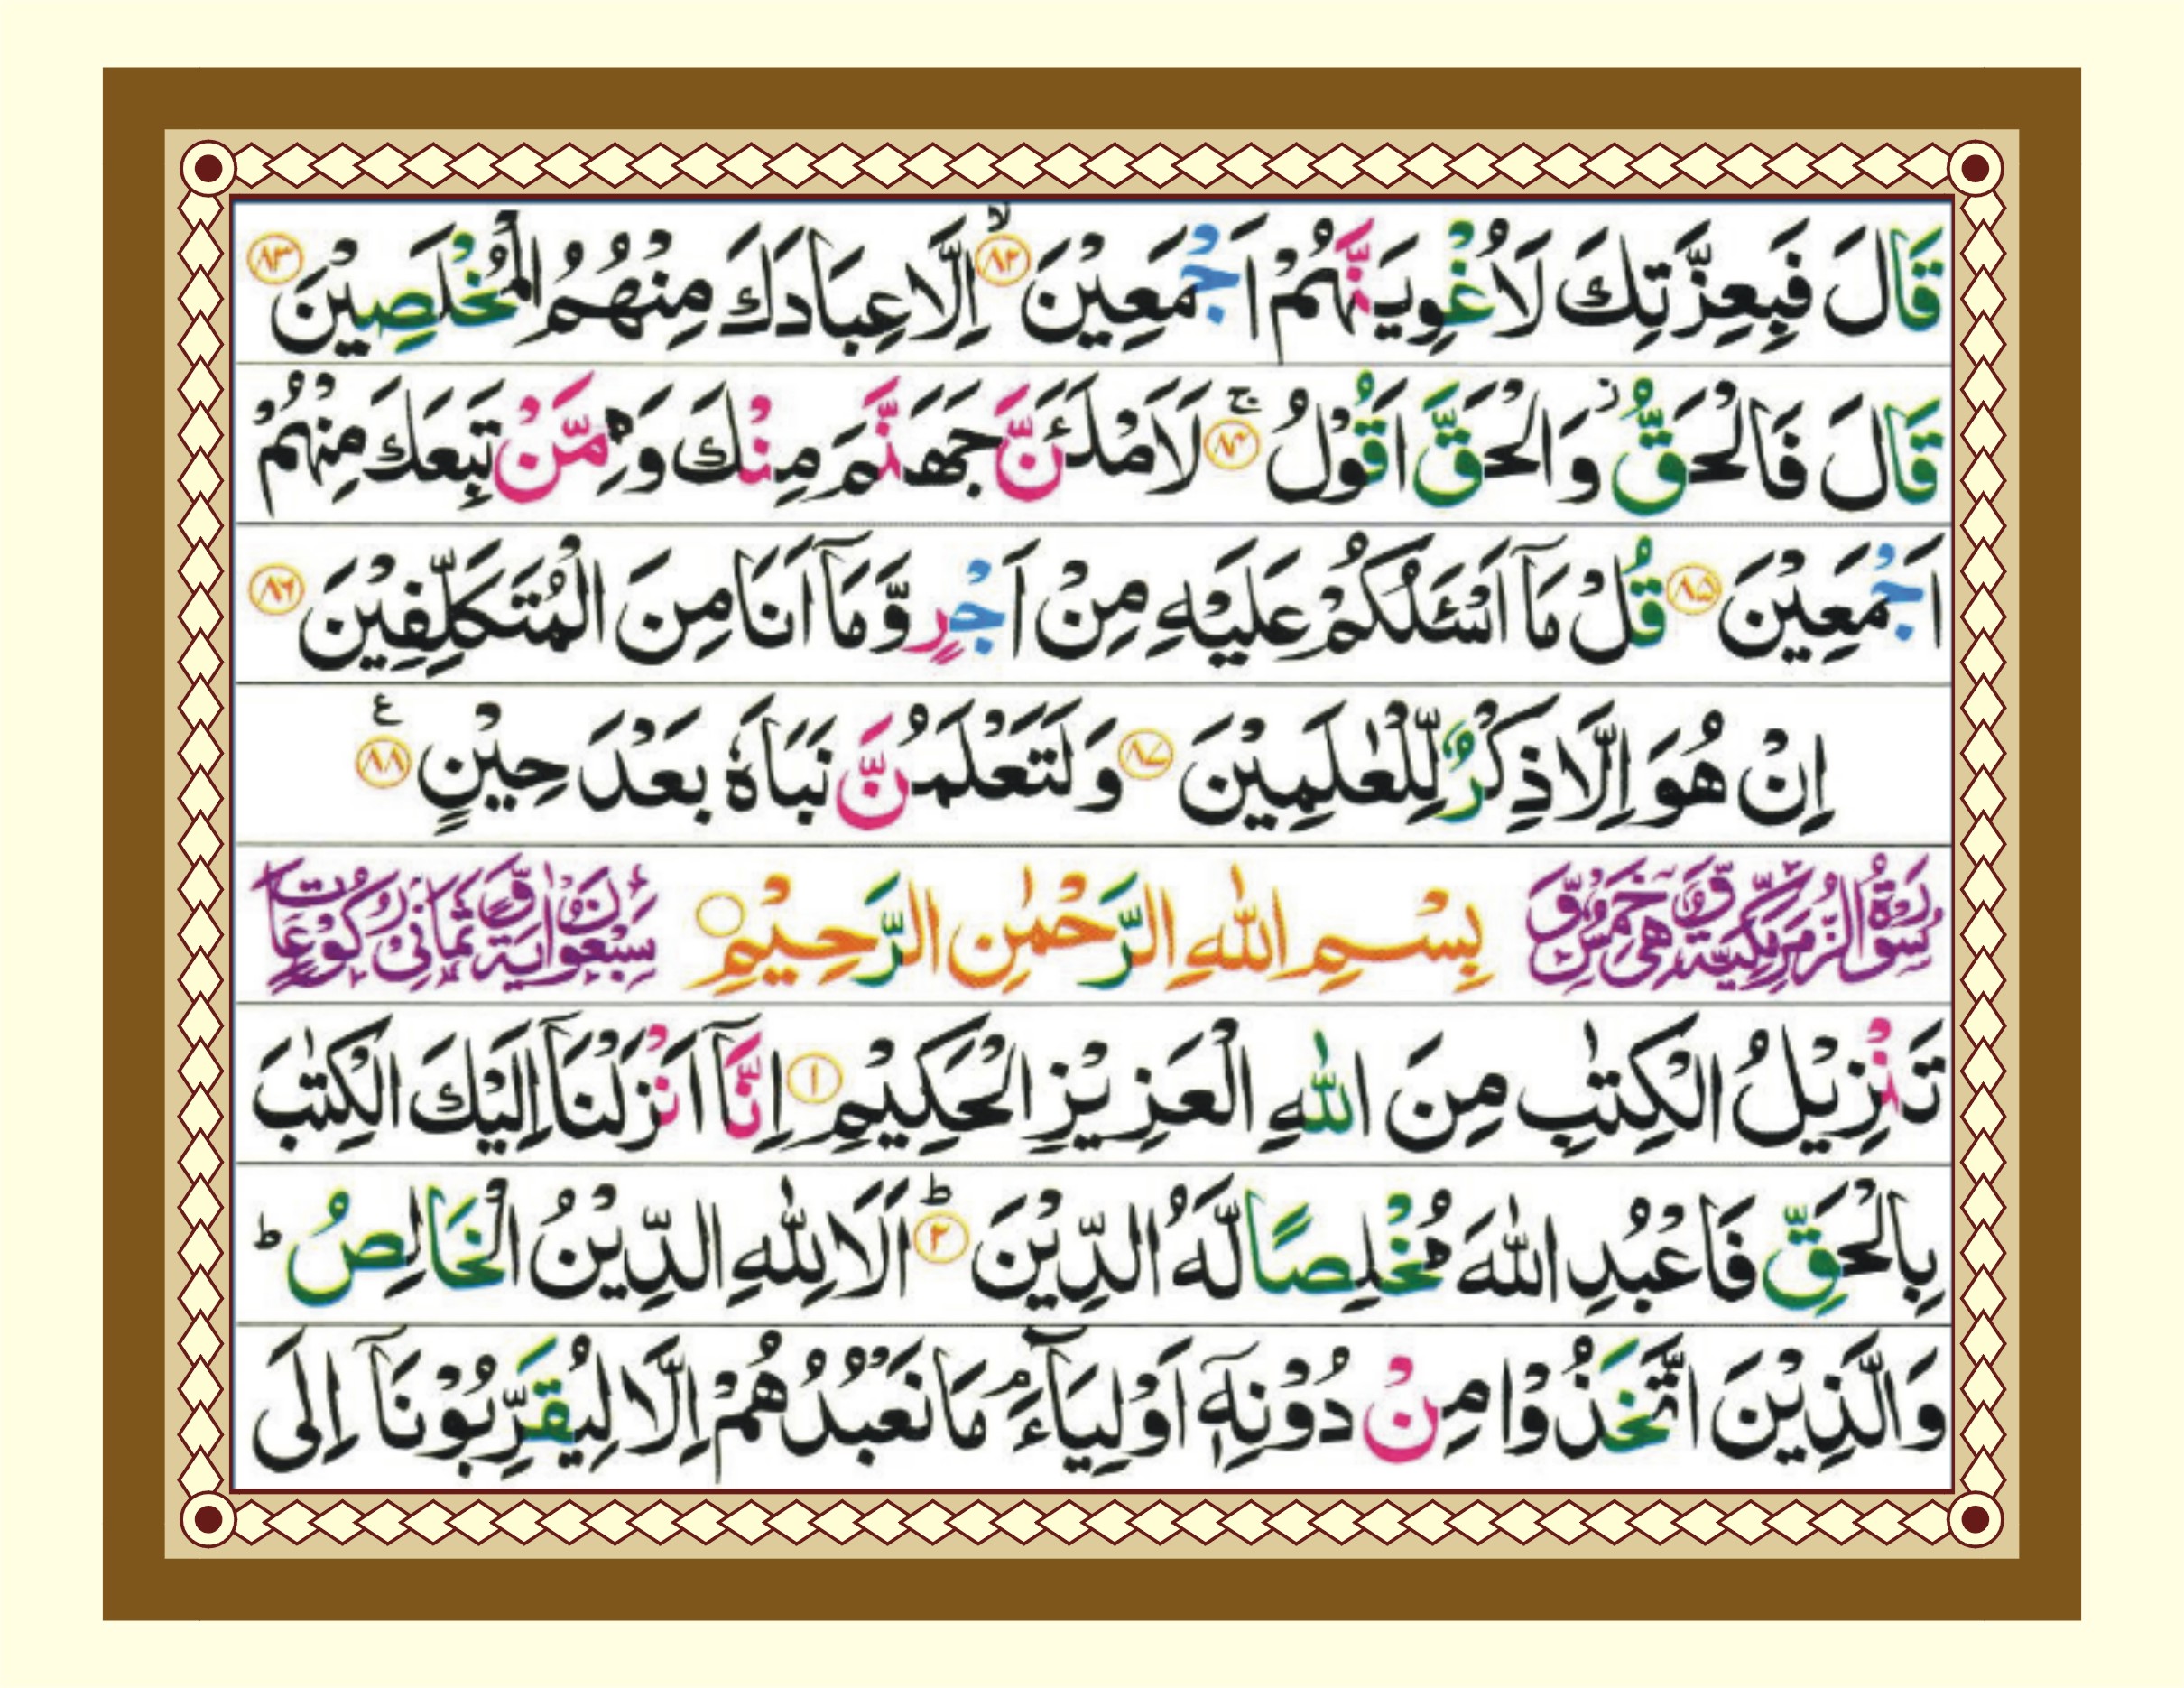 قَالَ فَبِعِزَّتِكَ لَاُغْوِيَنَّهُمْ اَجْمَعِيْنَ ۙ﴿۸۲﴾ اِلَّا عِبَادَكَ مِنْهُمُ الْمُخْلَصِيْنَ ﴿۸۳﴾
قَالَ فَالْحَقُّ ؗ وَالْحَقَّ اَقُوْلُ ۚ﴿۸۴﴾ لَاَمْلَـَٔنَّ جَهَنَّمَ مِنْكَ وَمِمَّنْ تَبِعَكَ مِنْهُمْ
اَجْمَعِيْنَ ﴿۸۵﴾ قُلْ مَاۤ اَسْـَٔلُكُمْ عَلَيْهِ مِنْ اَجْرٍ وَّمَاۤ اَنَا مِنَ الْمُتَكَلِّفِيْنَ ﴿۸۶﴾
اِنْ هُوَ اِلَّا ذِكْرٌ لِّلْعٰلَمِيْنَ ﴿۸۷﴾ وَلَتَعْلَمُنَّ نَبَاَهٗ بَعْدَ حِيْنٍ ﴿۸۸﴾ ع
سُوْرَةُ الزُّمَرِ مَكِّيَّةٌ وَّهِيَ خَمْسٌ وَّ بِسْمِ اللّٰهِ الرَّحْمٰنِ الرَّحِيْمِ سَبْعُوْنَ اٰيَةً وَّثَمَانِيْ رُكُوْعَاتٍ
تَنْزِيْلُ الْكِتٰبِ مِنَ اللّٰهِ الْعَزِيْزِ الْحَكِيْمِ ﴿۱﴾ اِنَّاۤ اَنْزَلْنَاۤ اِلَيْكَ الْكِتٰبَ
بِالْحَقِّ فَاعْبُدِ اللّٰهَ مُخْلِصًا لَّهُ الدِّيْنَ ؕ﴿۲﴾ اَلَا لِلّٰهِ الدِّيْنُ الْخَالِصُ ؕ
وَالَّذِيْنَ اتَّخَذُوْا مِنْ دُوْنِهٖۤ اَوْلِيَآءَ ۘ مَا نَعْبُدُهُمْ اِلَّا لِيُقَرِّبُوْنَاۤ اِلَى